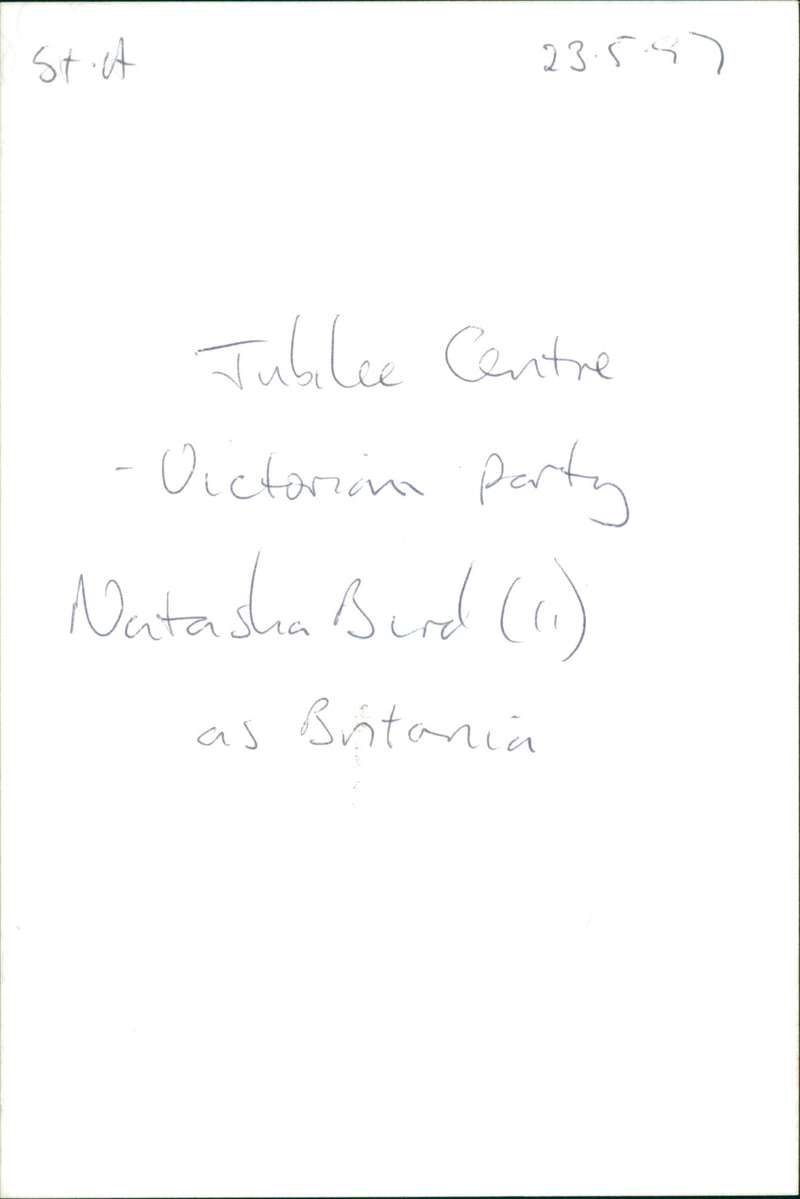 St.A 23.5.97
Jubilee Centre
- Victorian party
Natasha Burd (11)
as Britania